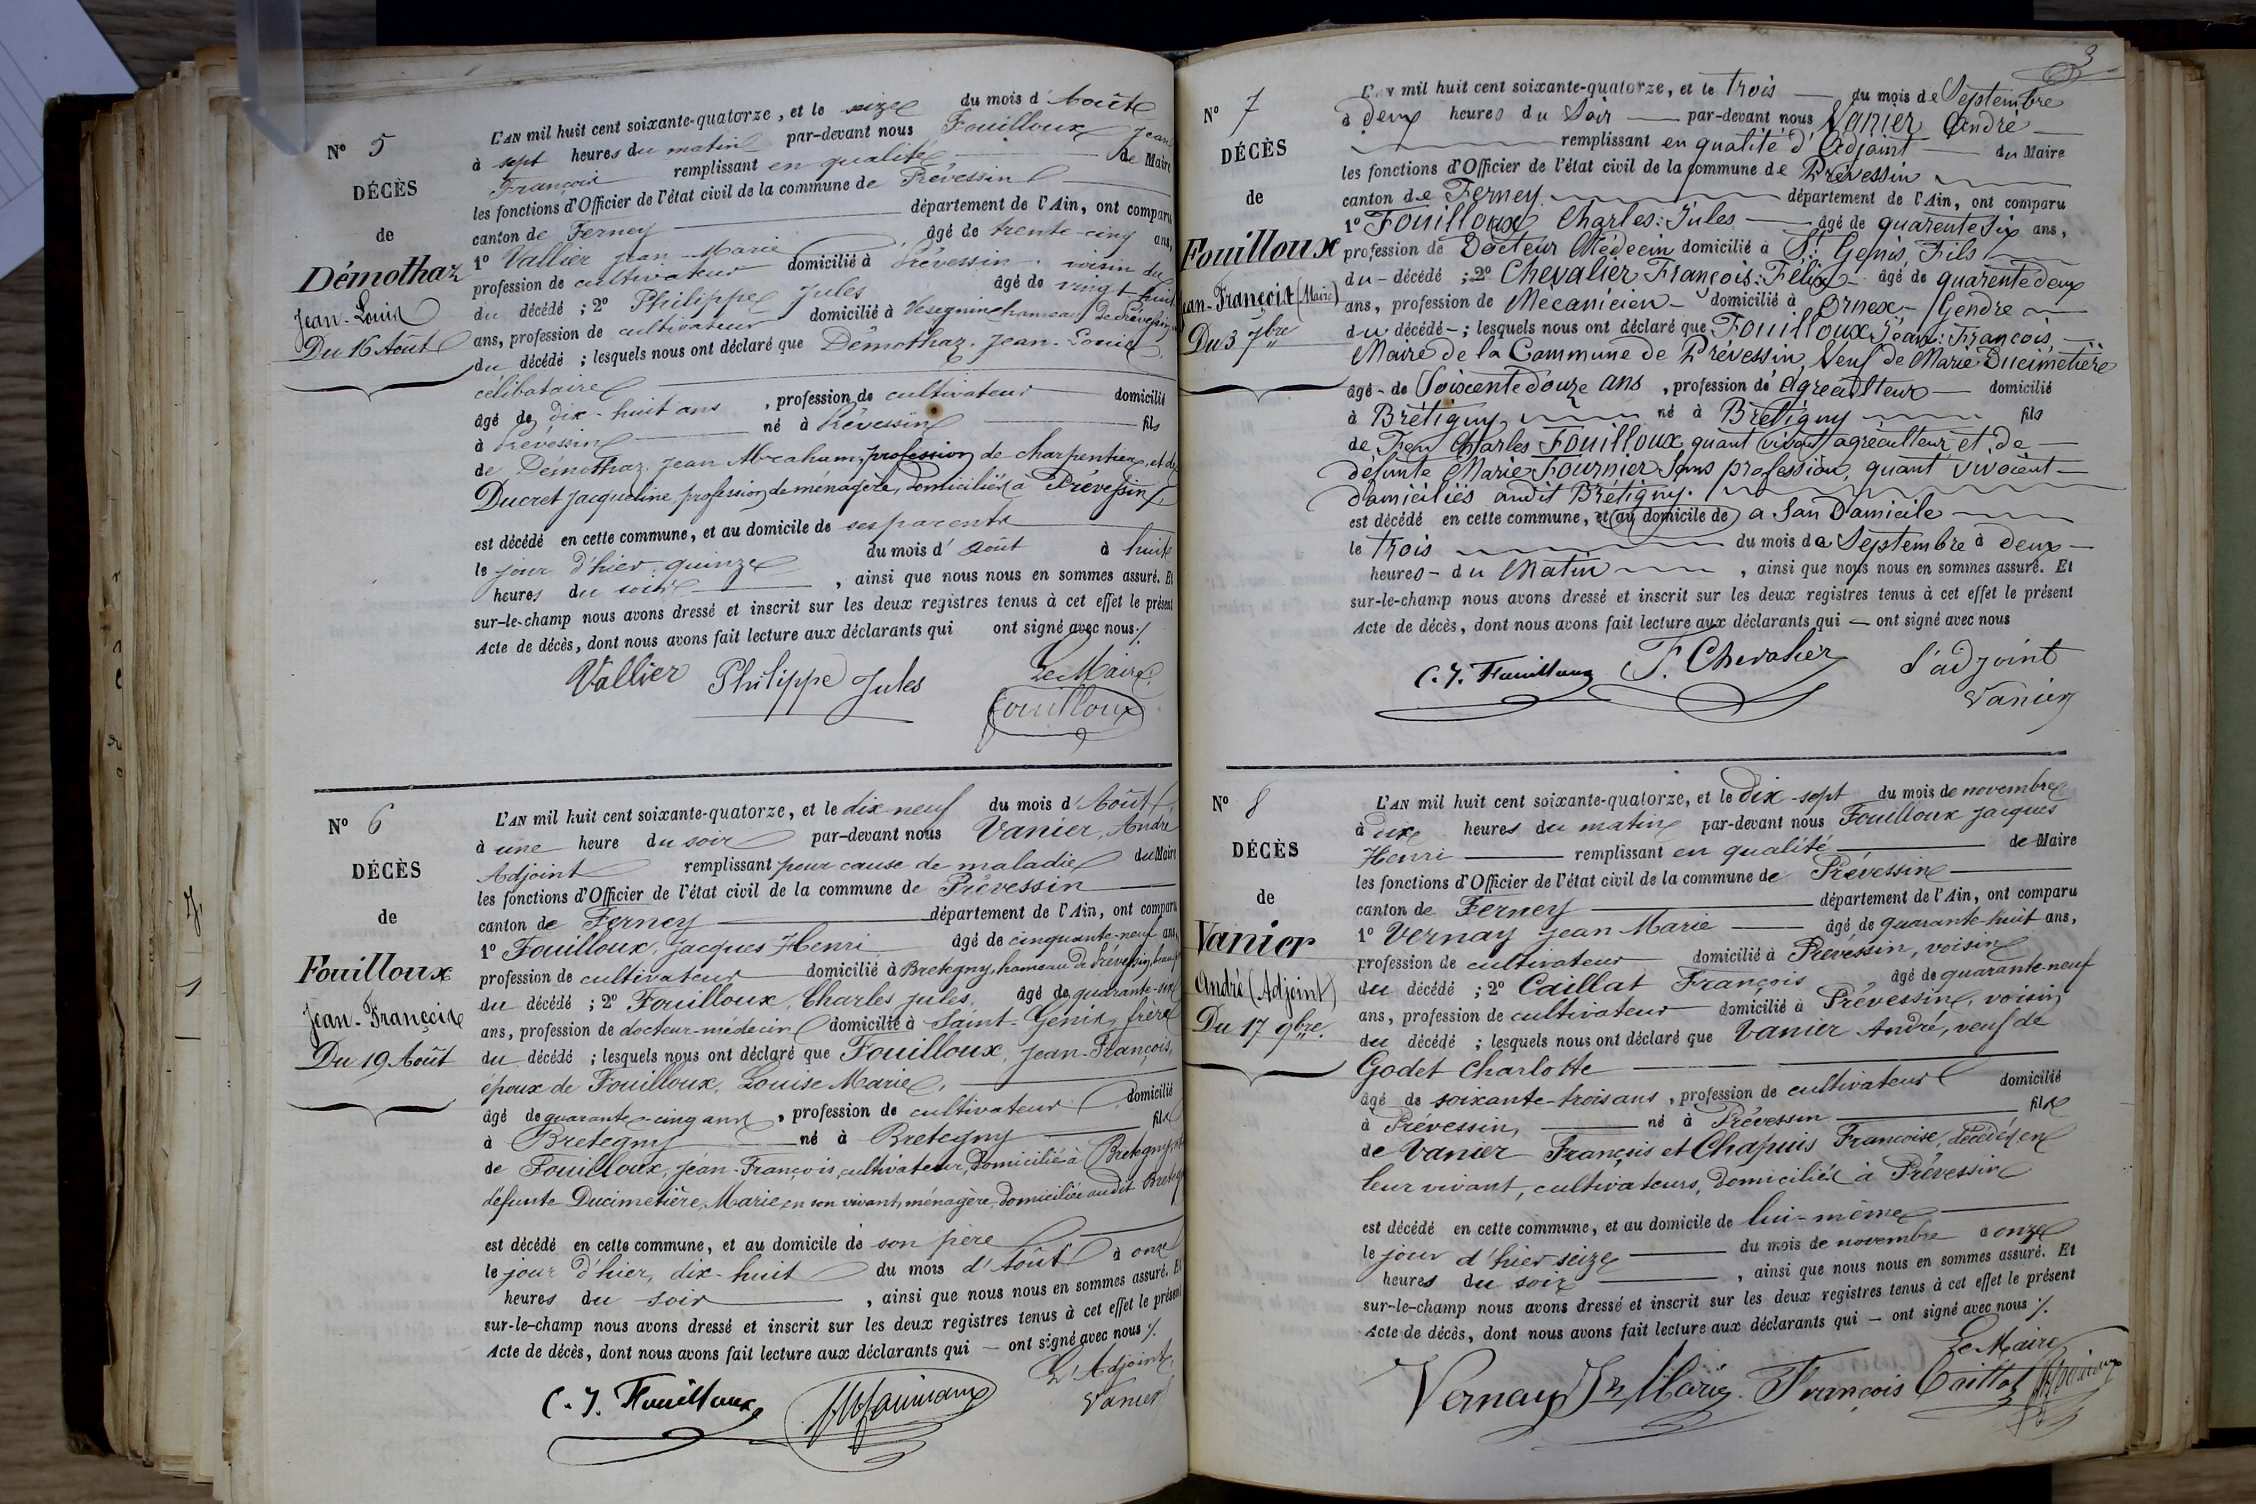 N° 5
DÉCÈS
de
Démothaz
Jean-Louis
Du 16 Août
L'AN mil huit cent soixante-quatorze, et le seize du mois d'Août
à sept heures du matin par-devant nous Fouilloux Jean
François remplissant en qualité de Maire
les fonctions d'Officier de l'état civil de la commune de Prévessin
canton de Ferney département de l'Ain, ont comparu
1° Vallier Jean-Marie âgé de trente-cinq ans,
profession de cultivateur domicilié à Prévessin, voisin du
du décédé ; 2° Philippe Jules âgé de vingt huit
ans, profession de cultivateur domicilié à Vesegnin hameau de Prévessin
du décédé ; lesquels nous ont déclaré que Démothaz Jean-Louis,
célibataire
âgé de dix-huit ans, profession de cultivateur domicilié
à Prévessin né à Prévessin fils
de Démothaz Jean Abraham, profession de charpentier, et de
Ducret Jacqueline, profession de ménagère, domiciliés à Prévessin
est décédé en cette commune, et au domicile de ses parents
le jour d'hier quinze du mois d'Août à huit
heures du soir, ainsi que nous nous en sommes assuré. Et
sur-le-champ nous avons dressé et inscrit sur les deux registres tenus à cet effet le présent
Acte de décès, dont nous avons fait lecture aux déclarants qui ont signé avec nous ./.
Vallier Philippe Jules Le Maire
Fouilloux
N° 6
DÉCÈS
de
Fouilloux
Jean-François
Du 19 Août
L'AN mil huit cent soixante-quatorze, et le dix-neuf du mois d'Août
à une heure du soir par-devant nous Vanier, André
Adjoint remplissant pour cause de maladie du Maire
les fonctions d'Officier de l'état civil de la commune de Prévessin
canton de Ferney département de l'Ain, ont comparu
1° Fouilloux, Jacques Henri âgé de cinquante-neuf ans,
profession de cultivateur domicilié à Bretegny, hameau de Prévessin,
du décédé ; 2° Fouilloux, Charles Jules, âgé de quarante-six
ans, profession de docteur-médecin domicilié à Saint-Genis, frère
du décédé ; lesquels nous ont déclaré que Fouilloux, Jean-François,
époux de Fouilloux, Louise Marie,
âgé de quarante-cinq ans, profession de cultivateur domicilié
à Bretegny né à Bretegny fils
de Fouilloux, Jean-François, cultivateur, domicilié à Bretegny,
défunte Ducimetière, Marie, en son vivant, ménagère, domiciliée au dit Bretegny
est décédé en cette commune, et au domicile de son père
le jour d'hier, dix-huit du mois d'Août à onze
heures du soir, ainsi que nous nous en sommes assuré. Et
sur-le-champ nous avons dressé et inscrit sur les deux registres tenus à cet effet le présent
Acte de décès, dont nous avons fait lecture aux déclarants qui — ont signé avec nous ./.
L'Adjoint,
C. J. Fouilloux Vanier
3
N° 7
DÉCÈS
de
Fouilloux
Jean-François (Maire)
Du 3 7bre
L'AN mil huit cent soixante-quatorze, et le trois du mois de Septembre
à Deux heures du Soir par-devant nous Vanier André
remplissant en qualité d'Adjoint du Maire
les fonctions d'Officier de l'état civil de la commune de Prévessin
canton de Ferney département de l'Ain, ont comparu
1° Fouilloux Charles: Jules âgé de quarente six ans,
profession de Docteur Médecin domicilié à St Genis, Fils
du - décédé ; 2° Chevalier François: Félix âgé de quarente deux
ans, profession de Mécanicien domicilié à Ornex Gendre
du décédé - ; lesquels nous ont déclaré que Fouilloux Jean: François,
Maire de la Commune de Prévessin, Veuf de Marie Ducimetière
âgé de Soixente douze ans, profession d'agreculteur domicilié
à Brétigny né à Brétigny fils
de Feu Charles Fouilloux quant vivant agreculteur et de
défunte Marie Fournier sans profession, quant vivoient
domiciliés audit Brétigny.
est décédé en cette commune, et (au domicile de) a San Domicile
le trois du mois de Septembre à deux
heures - du Matin, ainsi que nous nous en sommes assuré. Et
sur-le-champ nous avons dressé et inscrit sur les deux registres tenus à cet effet le présent
Acte de décès, dont nous avons fait lecture aux déclarants qui — ont signé avec nous
C. J. Fouilloux F. Chevalier l'adjoint
Vanier
N° 8
DÉCÈS
de
Vanier
André (Adjoint)
Du 17 9bre.
L'AN mil huit cent soixante-quatorze, et le dix-sept du mois de novembre
à dix heures du matin par-devant nous Fouilloux Jacques
Henri remplissant en qualité de Maire
les fonctions d'Officier de l'état civil de la commune de Prévessin
canton de Ferney département de l'Ain, ont comparu
1° Vernay Jean Marie âgé de quarante-huit ans,
profession de cultivateur domicilié à Prévessin, voisin
du décédé ; 2° Caillat François âgé de quarante-neuf
ans, profession de cultivateur domicilié à Prévessin, voisin
du décédé ; lesquels nous ont déclaré que Vanier André, veuf de
Godet Charlotte
âgé de soixante-trois ans, profession de cultivateur domicilié
à Prévessin, né à Prévessin fils
de Vanier François et Chapuis Francoise, décédés en
leur vivant, cultivateurs, domiciliés à Prévessin
est décédé en cette commune, et au domicile de lui-même
le jour d'hier seize du mois de novembre à onze
heures du soir, ainsi que nous nous en sommes assuré. Et
sur-le-champ nous avons dressé et inscrit sur les deux registres tenus à cet effet le présent
Acte de décès, dont nous avons fait lecture aux déclarants qui — ont signé avec nous ./.
Le Maire
Vernay Jn Marie François Caillat